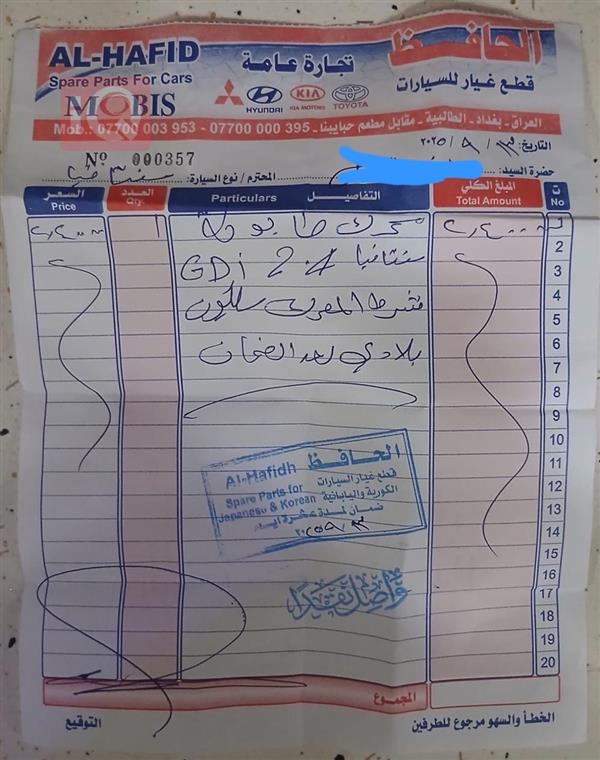 AL-HAFID
Spare Parts For Cars
MOBIS
تجارة عامة
HYUNDAI
KIA
KIA MOTORS
TOYOTA
الحافظ
قطع غيار للسيارات
العراق - بغداد - الطالبية - مقابل مطعم حبايبنا
Mob.: 07700 003 953 - 07700 000 395
التاريخ: ١٣ / ٩ / ٢٠٢٥
Nº 000357
حضرة السيد: المحترم / نوع السيارة:
ت المبلغ الكلي التفاصيل العدد السعر
No Total Amount Particulars Qty. Price
محرك
سنتافيا 2.4 GDi
بلادي بعد الضمان
2
3
4
5
6
7
8
9
10
11
12
13
14
15
16
17
18
19
20
الحافظ
Al-Hafidh
قطع غيار السيارات
Spare Parts for
الكورية واليابانية
Japanese & Korean
ضمان لمدة عشرة ايام
واصل نقدا
المجموع
الخطأ والسهو مرجوع للطرفين
التوقيع